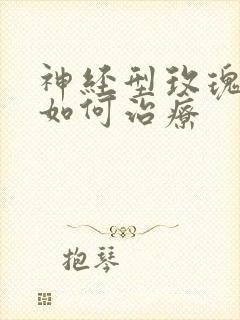 神经型玫瑰
如何治疗
抱琴